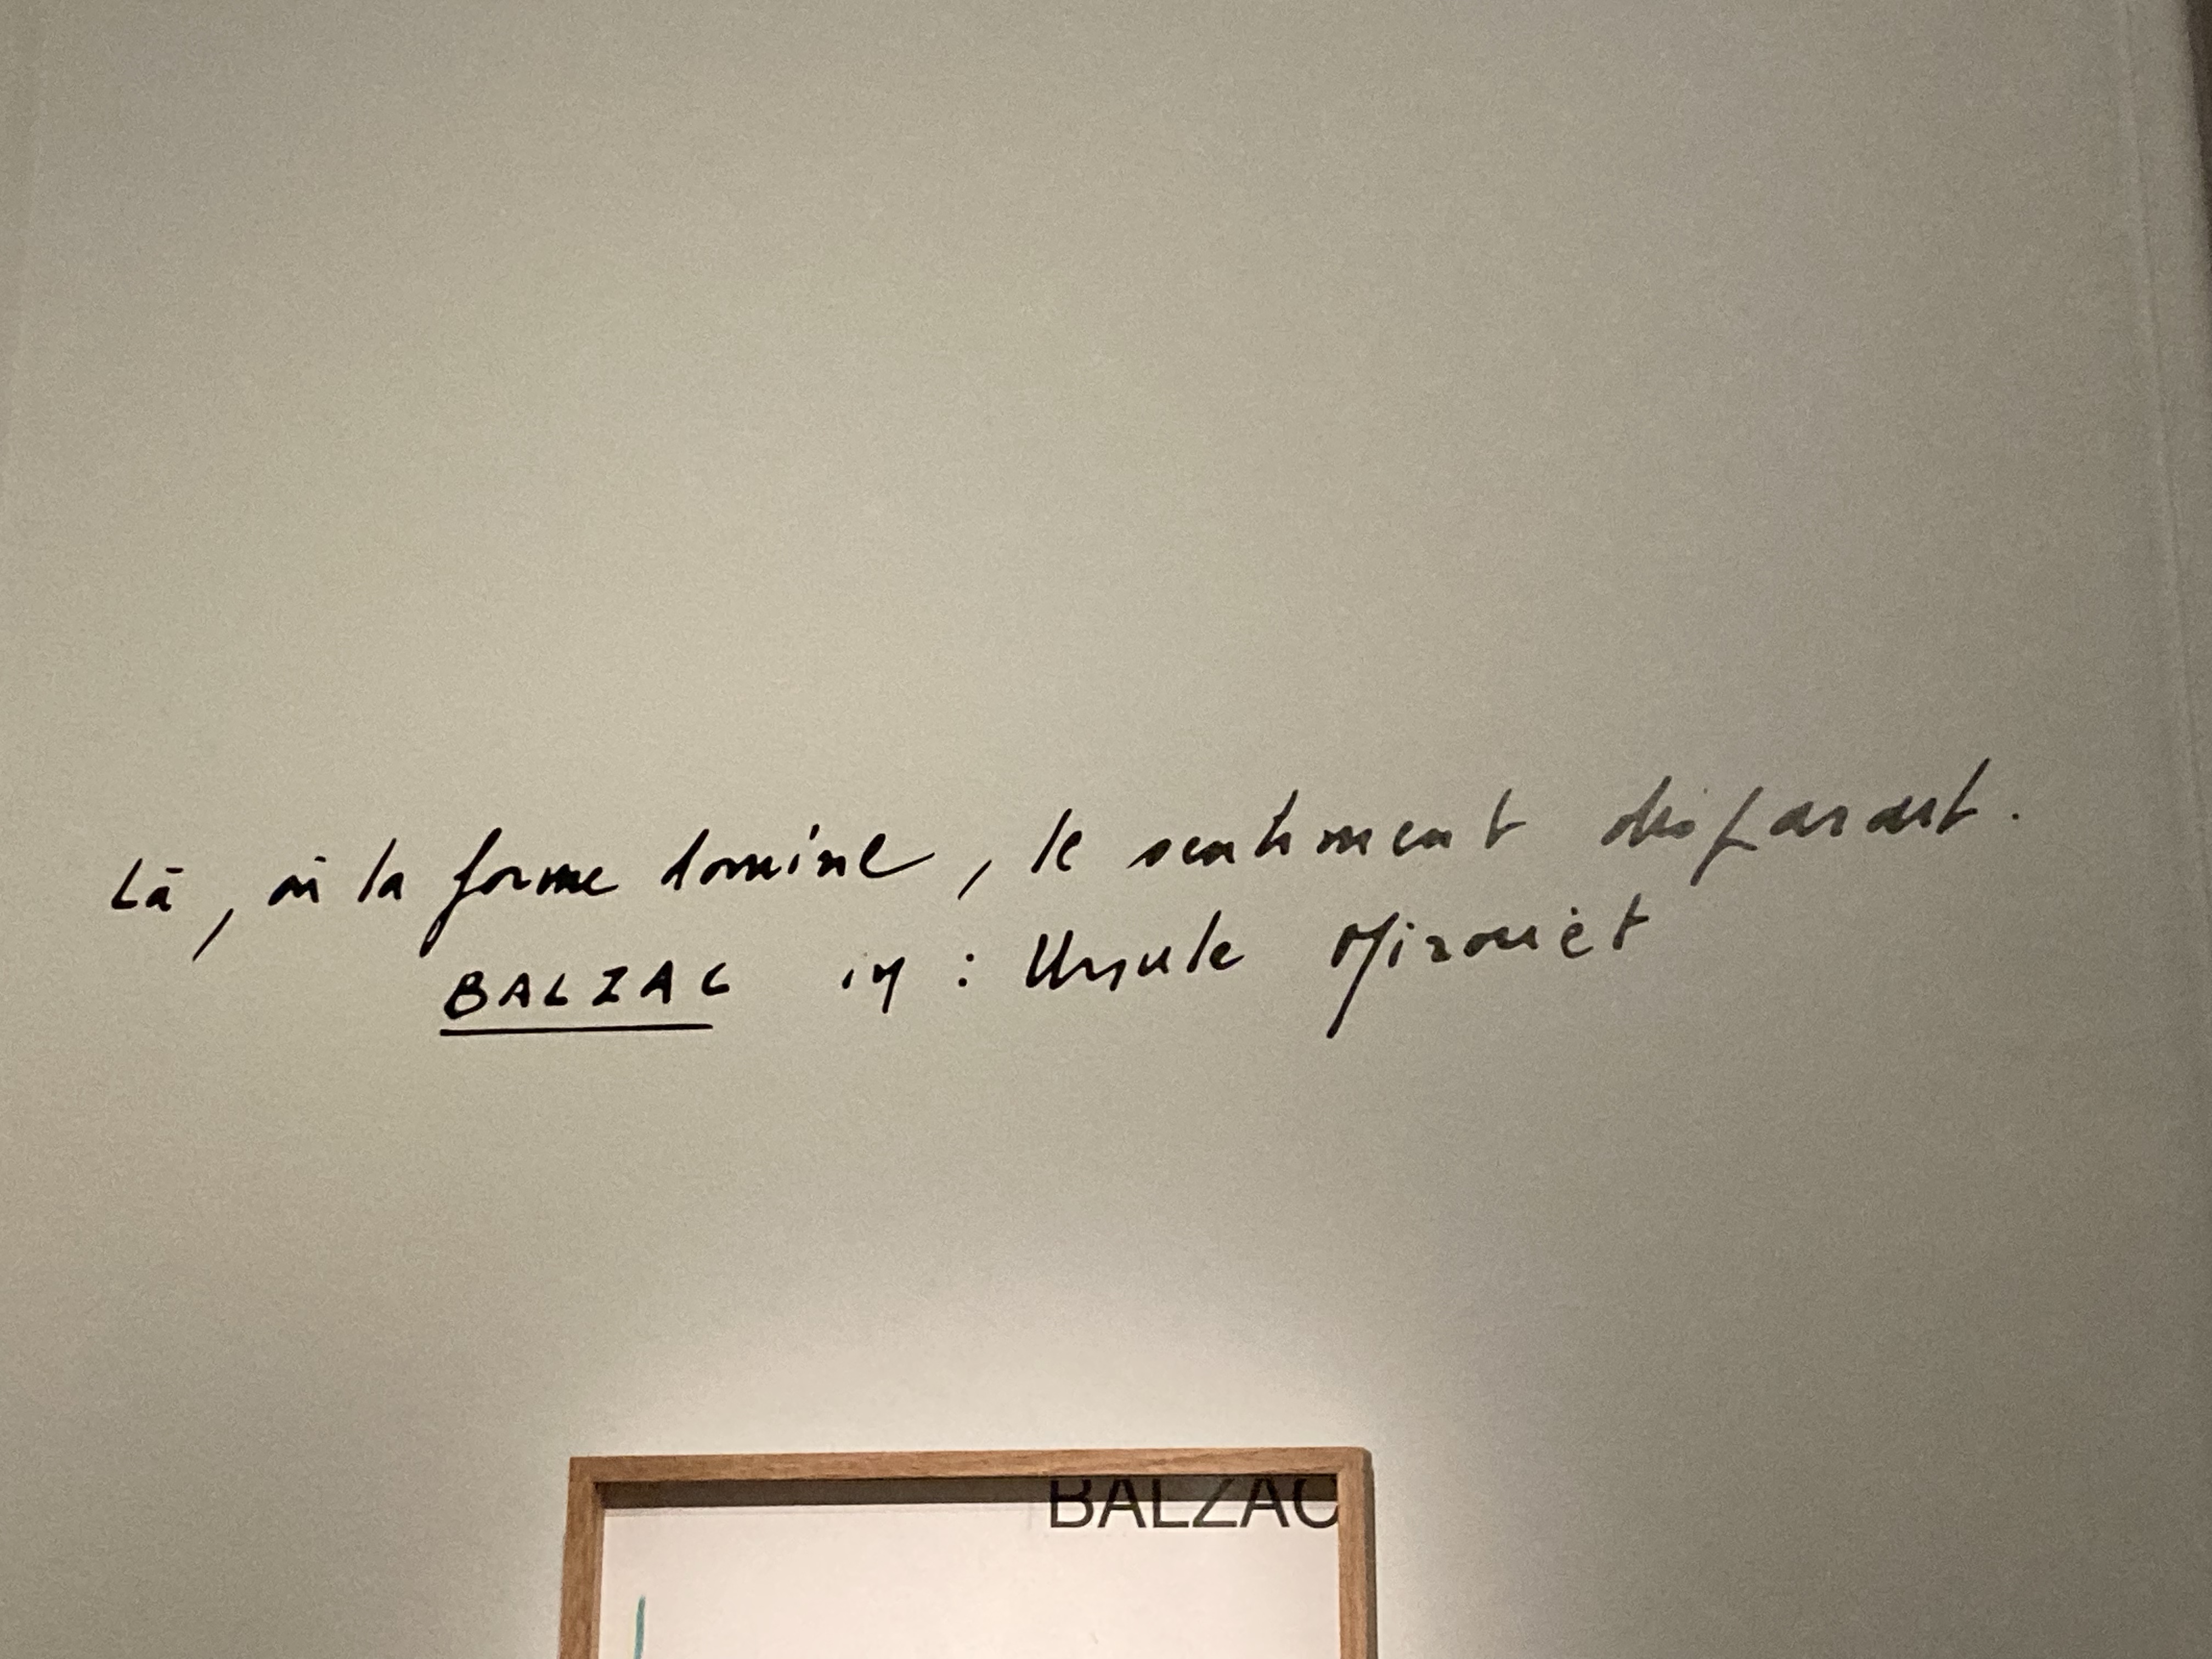 Là, où la forme domine, le sentiment disparaît.
BALZAC in : Ursule Mirouèt
BALZAC